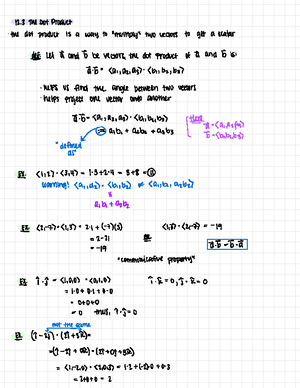 12.3 The Dot Product
the dot product is a way to "multiply" two vectors to get a scalar
Let a⃗ and b⃗ be vectors, the dot product of a⃗ and b⃗ is:
a⃗·b⃗ = <a₁,a₂,a₃> · <b₁,b₂,b₃>
· helps us find the angle between two vectors
· helps project one vector onto another
a⃗·b⃗ = <a₁,a₂,a₃> · <b₁,b₂,b₃>
a⃗ = <a₁,a₂,a₃>
b⃗ = <b₁,b₂,b₃>
:= a₁b₁ + a₂b₂ + a₃b₃
"defined
as"
EX. <1,2> · <3,4> = 1·3 + 2·4 = 3+8 = 11
Warning! <a₁,a₂> · <b₁,b₂> ≠ <a₁b₁, a₂b₂>
a₁b₁ + a₂b₂
EX. <2,-7> · <1,3> = 2·1 + (-7)(3)
<1,3> · <2,-7> = -19
= 2-21
= -19
a⃗·b⃗ = b⃗·a⃗
"commutative property"
EX. î · ĵ = <1,0,0> · <0,1,0>
= 1·0 + 0·1 + 0·0
= 0+0+0
= 0 thus, î·ĵ = 0
not the same
= <1,-2,0> · <2,0,5> = 1·2 + (-2)·0 + 0·5
= 2+0+0 = 2